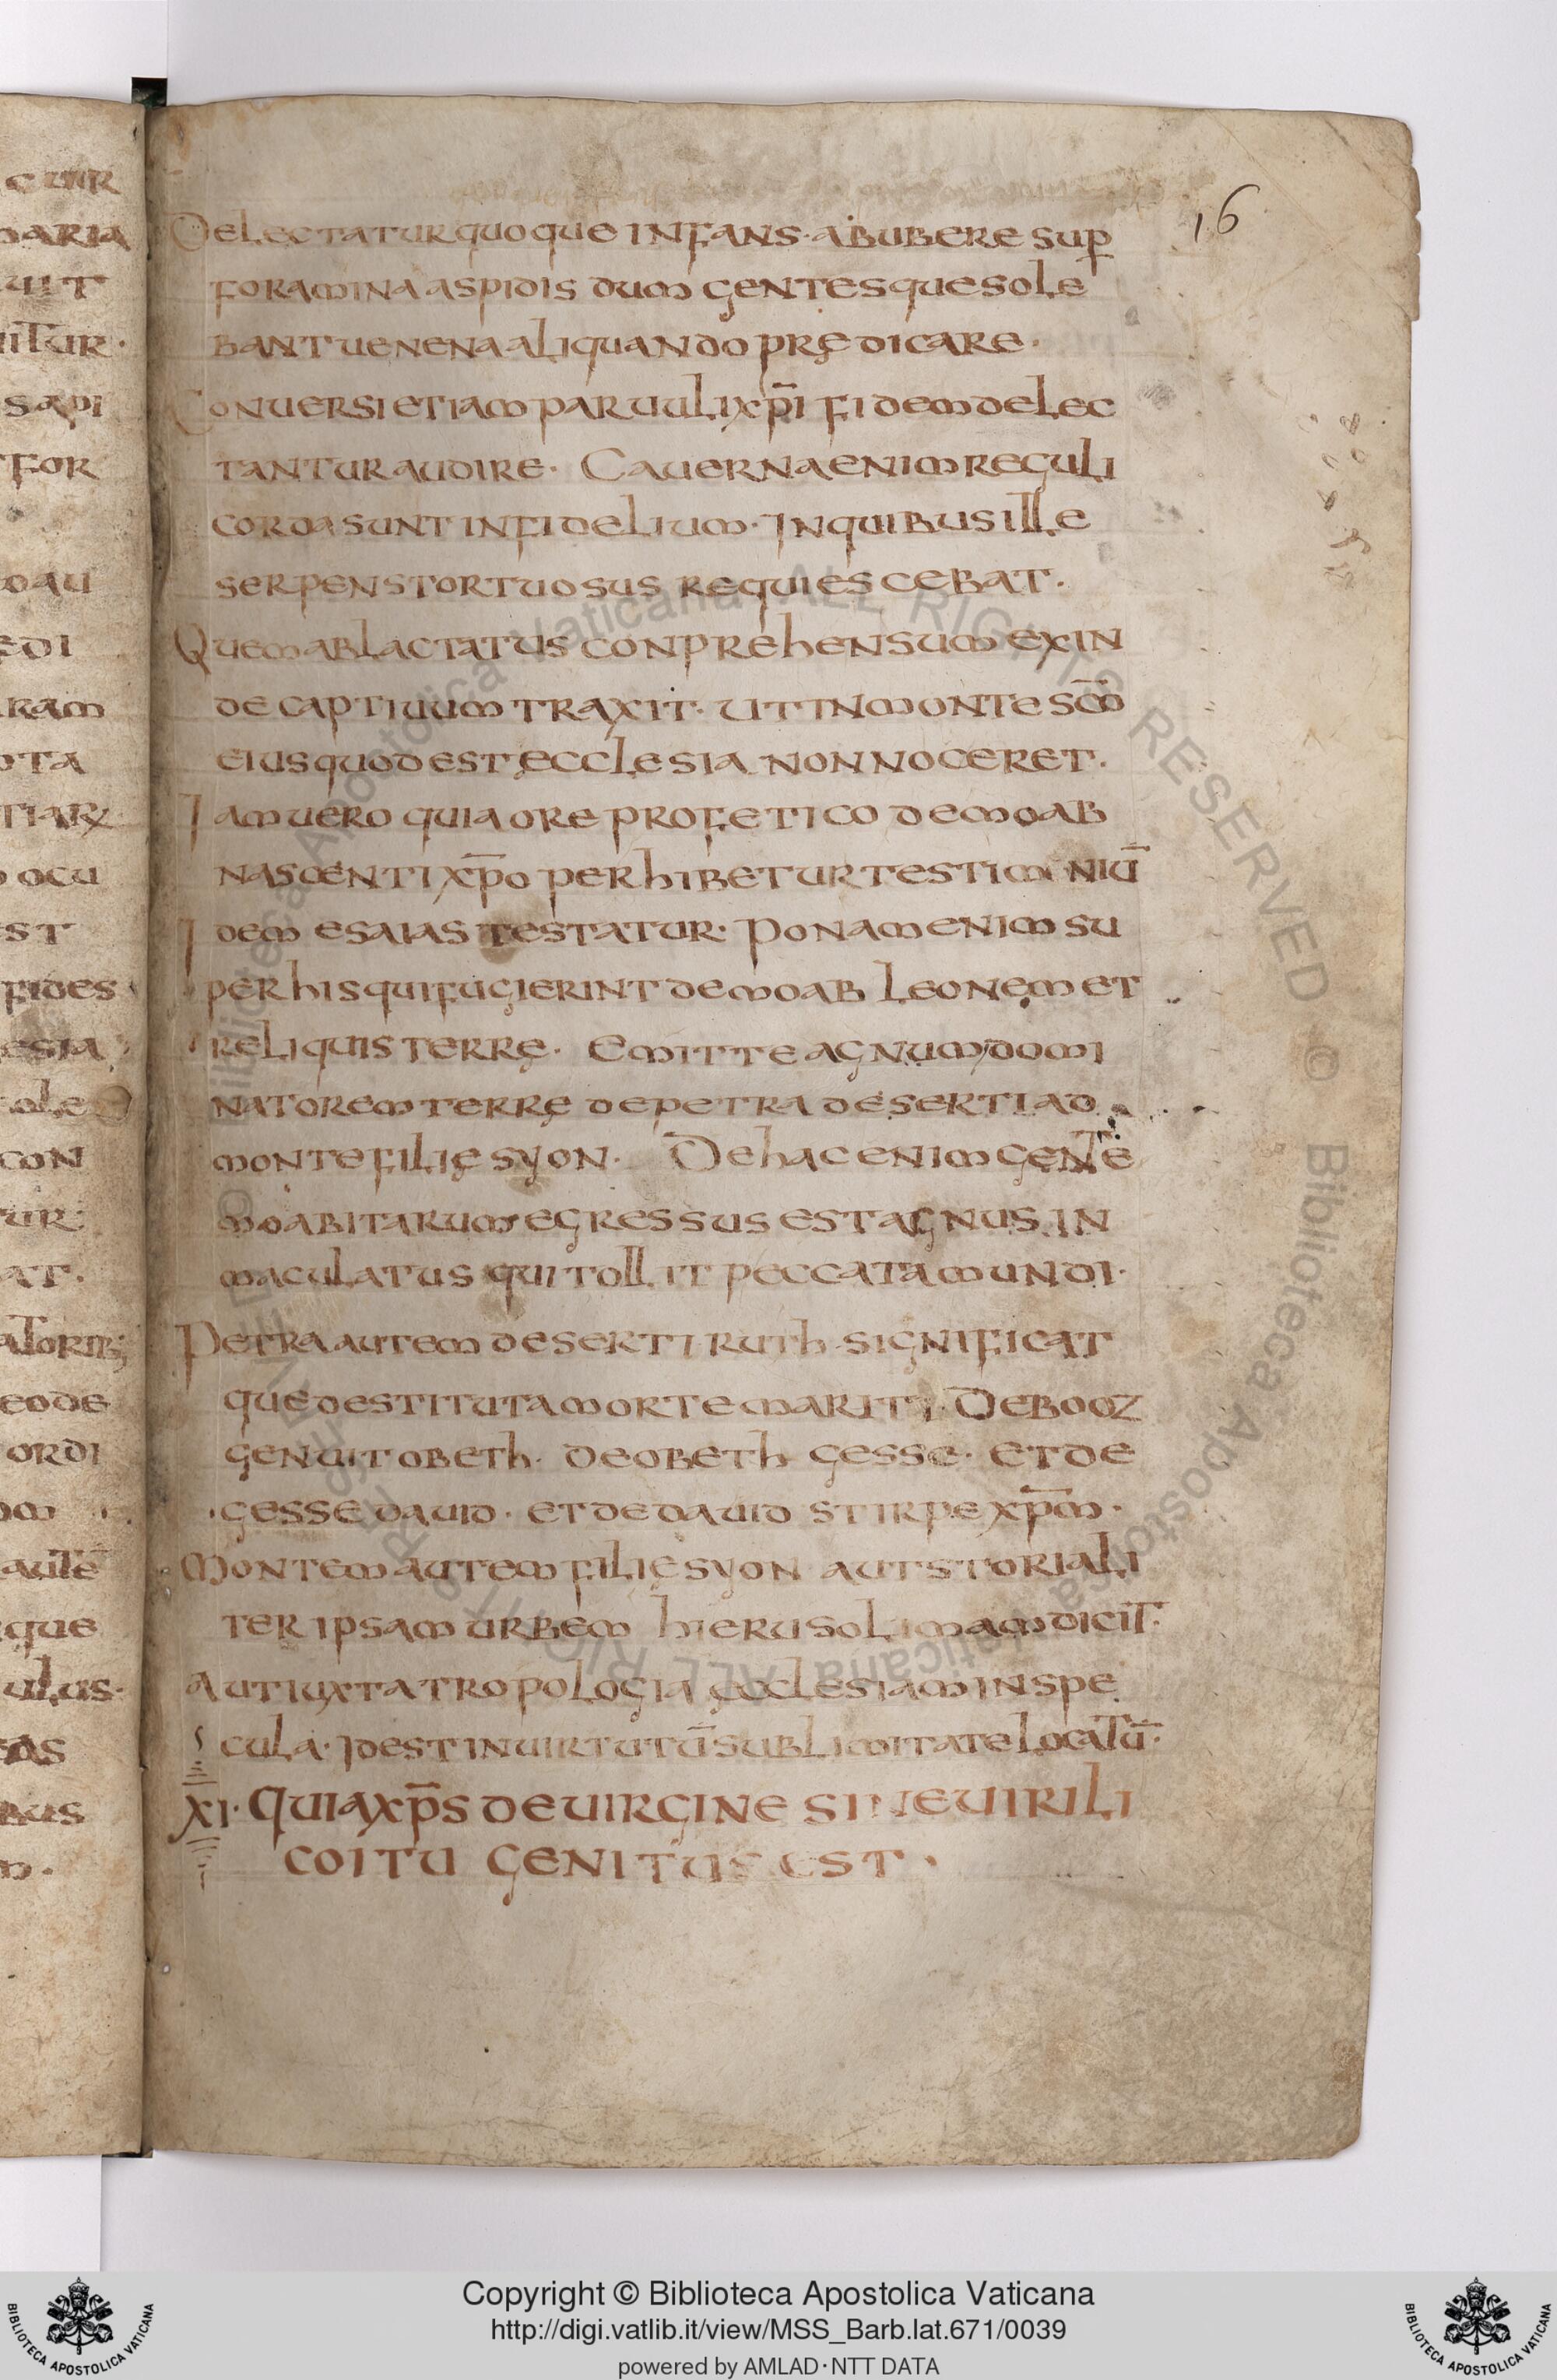 16
Delectatur quoque infans· ab ubere sup̱
foramina aspidis dum gentes que sole
bant uenena aliquando prędicare·
Conuersi etiam paruuli xp̄i fidem delec
tantur audire· Cauerna enim reguli
corda sunt infidelium· In quibus ille
serpens tortuosus requiescebat·
Quem ablactatus conprehensum exin
de captiuum traxit· ut in monte sc̄m
eius quod est ecclesia non noceret·
Iam uero quia ore profetico de moab
nascenti xp̄o perhibetur testimoniū
Idem esaias testatur· Ponam enim su
per his qui fugierint de moab leonem et
reliquis terrę· Emitte agnum domi
natorem terrę de petra deserti ad
monte filię syon· De hac enim gente
moabitarum egressus est agnus in
maculatus qui tollit peccata mundi·
Petra autem deserti ruth significat
que destituta morte mariti· De booz
genuit obeth· de obeth gesse· et de
gesse dauid· et de dauid stirpe xp̄m·
Montem autem filię syon aut storiali
ter ipsam urbem hierusolimam dicit·
Aut iuxta tropologia ęcclesiam in spe
cula· Id est in uirtutū sublimitate locatū·
XI· Quia xp̄s de uirgine sine uirili
coitu genitus est·
Copyright © Biblioteca Apostolica Vaticana
http://digi.vatlib.it/view/MSS_Barb.lat.671/0039
powered by AMLAD·NTT DATA
BIBLIOTECA APOSTOLICA VATICANA
BIBLIOTECA APOSTOLICA VATICANA